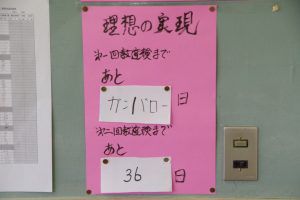 理想の実現
第一回教達検まで
あと
ガンバロー 日
第二回教達検まで
あと
36 日